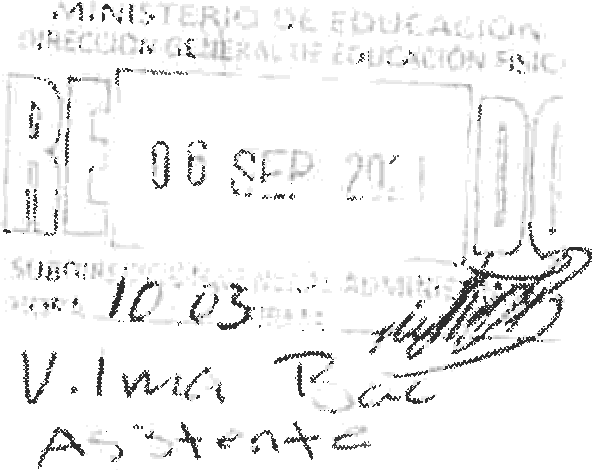 MINISTERIO DE EDUCACIÓN
DIRECCIÓN GENERAL DE EDUCACIÓN FÍSIC
RE DO
06 SEP 2021
SUBDIRECCIÓN GENERAL ADMINIS
HORA 10 03 FIRMA
Vilma Bac
Asistente